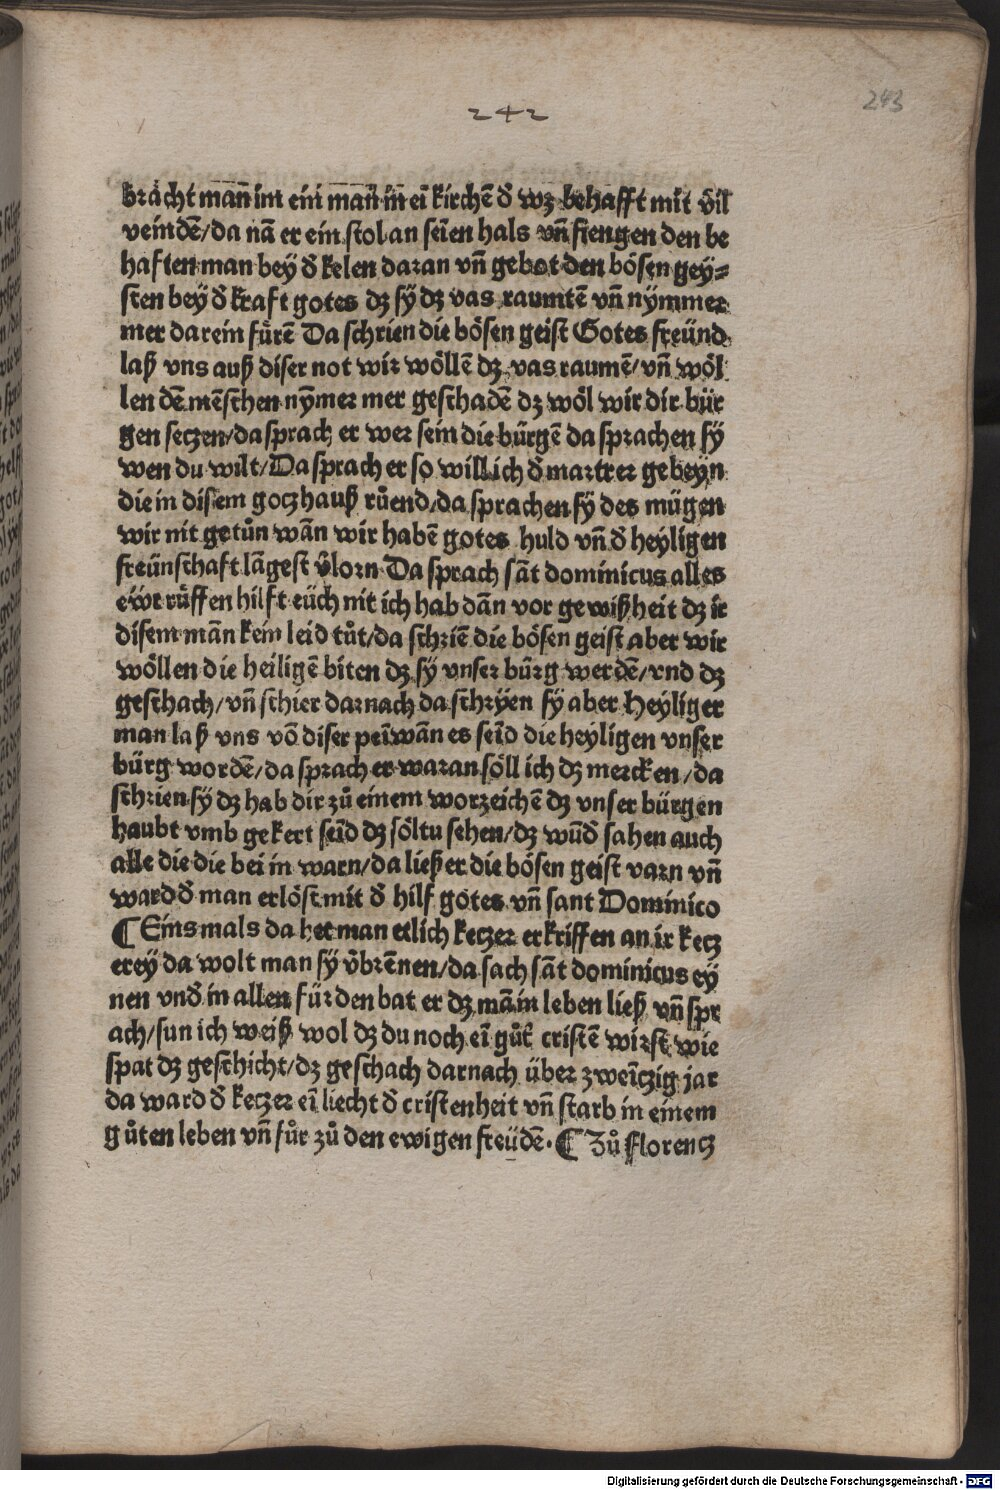 242
243
bracht man im ein man in eī kirchē đ wz behafft mit v̄il
veindē/da nā er ein stol an seīen hals vn̄ fiengen den be
haften man bey đ kelen daran vn̄ gebot den bösen gey⸗
sten bey đ kraft gotes dz sÿ dz vas raumtē vn̄ nymmer
mer darein fůrē Da schrien die bösen geist Gotes freünd
laß vns auß diser not wir wöllē dz vas raumē/vn̄ wöl
len dē mēschen nȳmer mer geschadē dz wöl wir dir bür
gen seczen/da sprach er wer sein die bürgē da sprachen sÿ
wen du wilt/Da sprach er so will ich đ martrer gebeyn
die in disem goczhauß růend/da sprachen sÿ des mügen
wir nit getůn wān wir habē gotes huld vn̄ đ heyligen
freünschaft lāgest v̄lorn Da sprach sāt dominicus alles
eẅr rüffen hilft eüch nit ich hab dān vor gewißheit dz ir
disem mān kein leid tůt/da schriē die bösen geist aber wir
wöllen die heiligē biten dz sÿ vnser bürg werdē/vnd dz
geschach/vn̄ schier darnach da schryen sÿ aber Heyliger
man laß vns vō diser peīwān es seīd die heyligen vnser
bürg wordē/da sprach er waran söll ich dz mercken/da
schrien sÿ dz hab dir zů einem worzeichē dz vnser bürgen
haubt vmb gekert seīd dz söltu sehen/dz wūđ sahen auch
alle die die bei in warn/da ließ er die bösen geist varn vn̄
ward đ man erlöst mit đ hilf gotes vn̄ sant Dominico
¶ Eins mals da het man etlich keczer erkriffen an ir kecz
erey da wolt man sÿ v̄brēnen/da sach sāt dominicus eÿ
nen vnđ in allen für den bat er dz mā in leben ließ vn̄ spr
ach/sun ich weiß wol dz du noch eī gůt̄ cristē wirst wie
spat dz geschicht/dz geschach darnach über zweīczig jar
da ward đ keczer eī liecht đ cristenheit vn̄ starb in einem
gůten leben vn̄ fůr zů den ewigen freüdē. ¶ Zů florencz
Digitalisierung gefördert durch die Deutsche Forschungsgemeinschaft - DFG